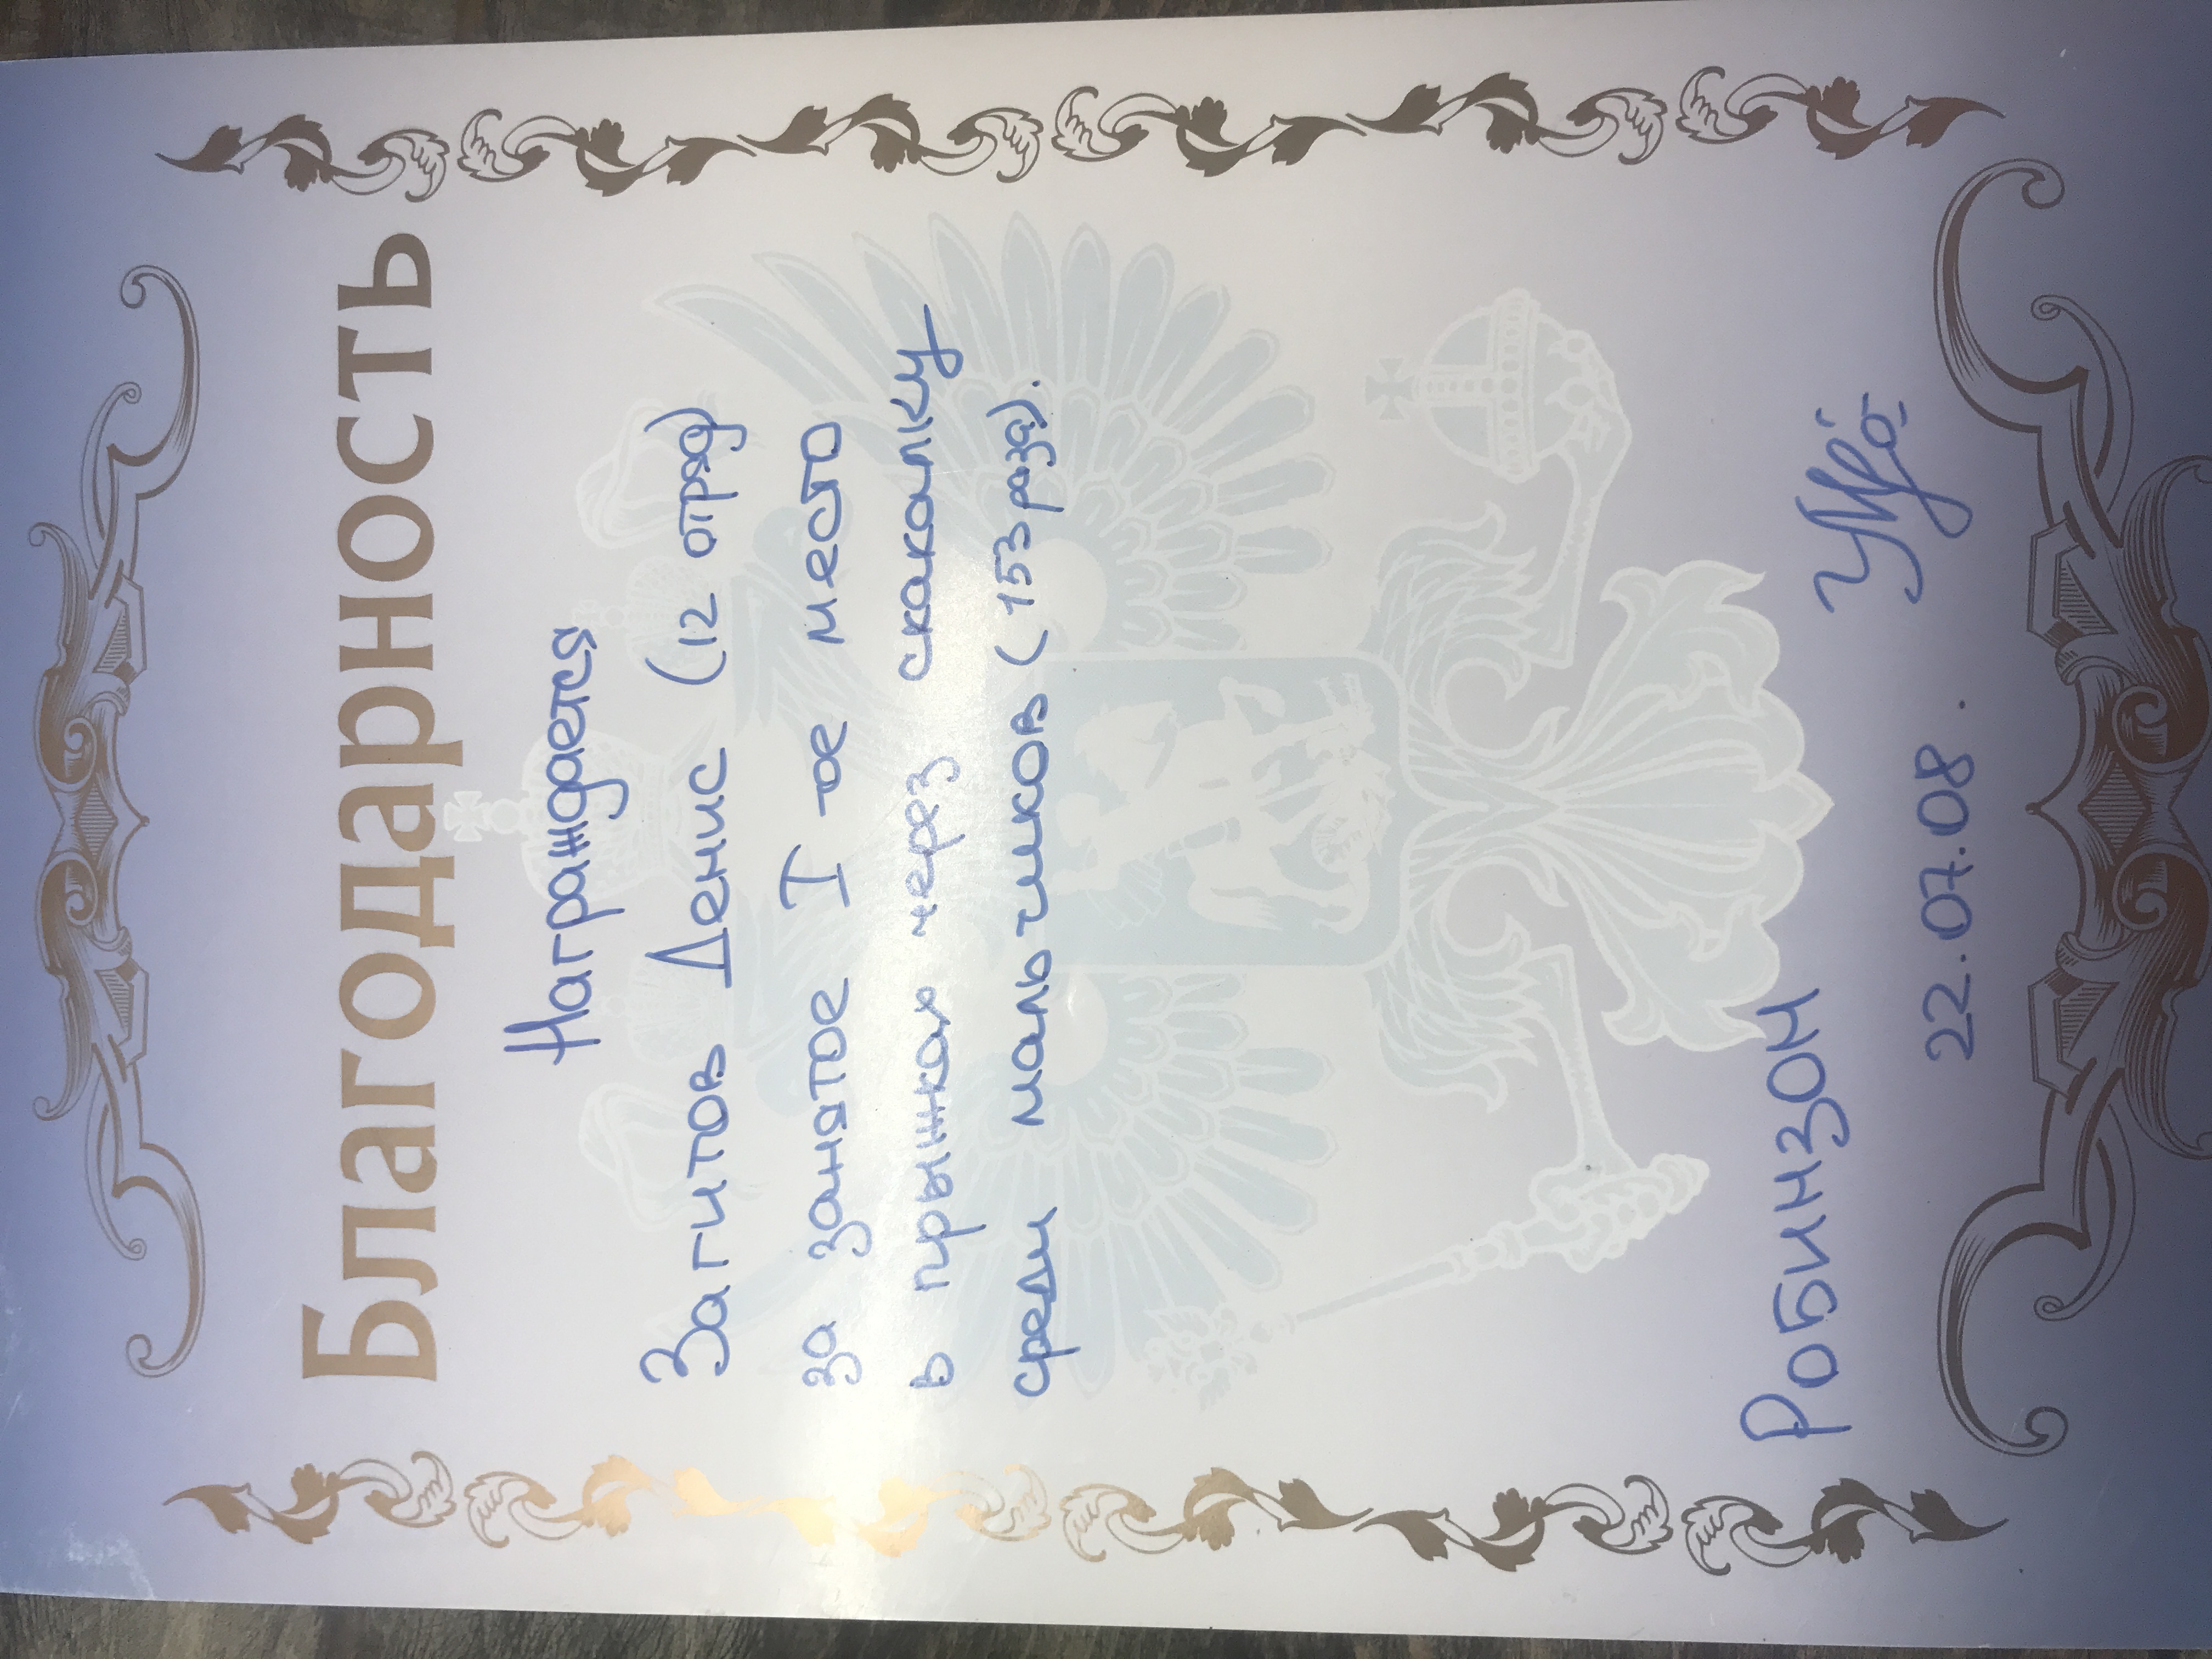 Благодарность
Награждается
Загитов Денис (12 отряд)
за занятое I-ое место
в прыжках через скакалку
среди мальчиков (153 раза).
Робинзон
22.07.08.